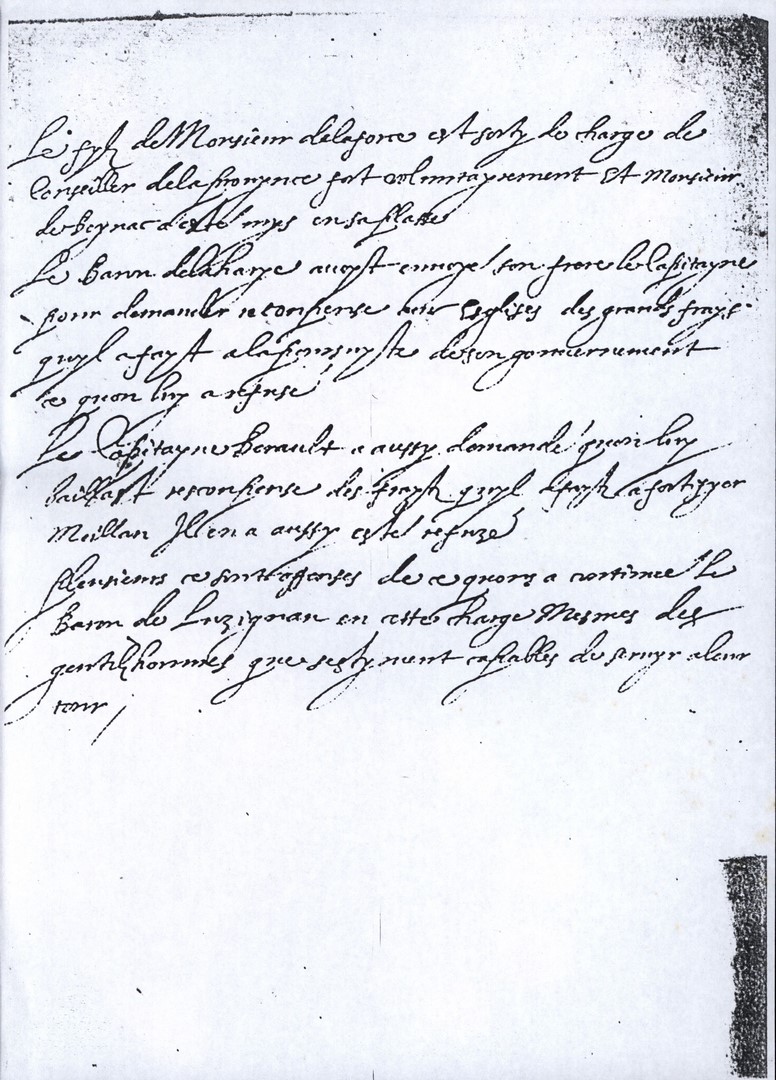 Le fylz de Monsieur delaforce est sorty de charge de
Conseiller dela provynce fort volontayrement Et Monsieur
de beynac a esté mys en sa plasse
Le Baron dela harpe avoyst envoyé son frere le Capitayne
pour demander reconpense aux Esglises des grands frays
quyl a fayst ala poursuyste de son gouvernement
ce quon luy a refusé
Le Capitayne Berault a aussy demandé quon luy
baillast reconpense des frays quyl a fayst a fortifyer
Meillan Il en a aussy esté refuzé
plusieurs ce sont offensés de ce quons a continué Le
Baron de Luzignan en ceste charge Mesmes des
gentilzhommes que sestyment capables de servyr a leur
tour /